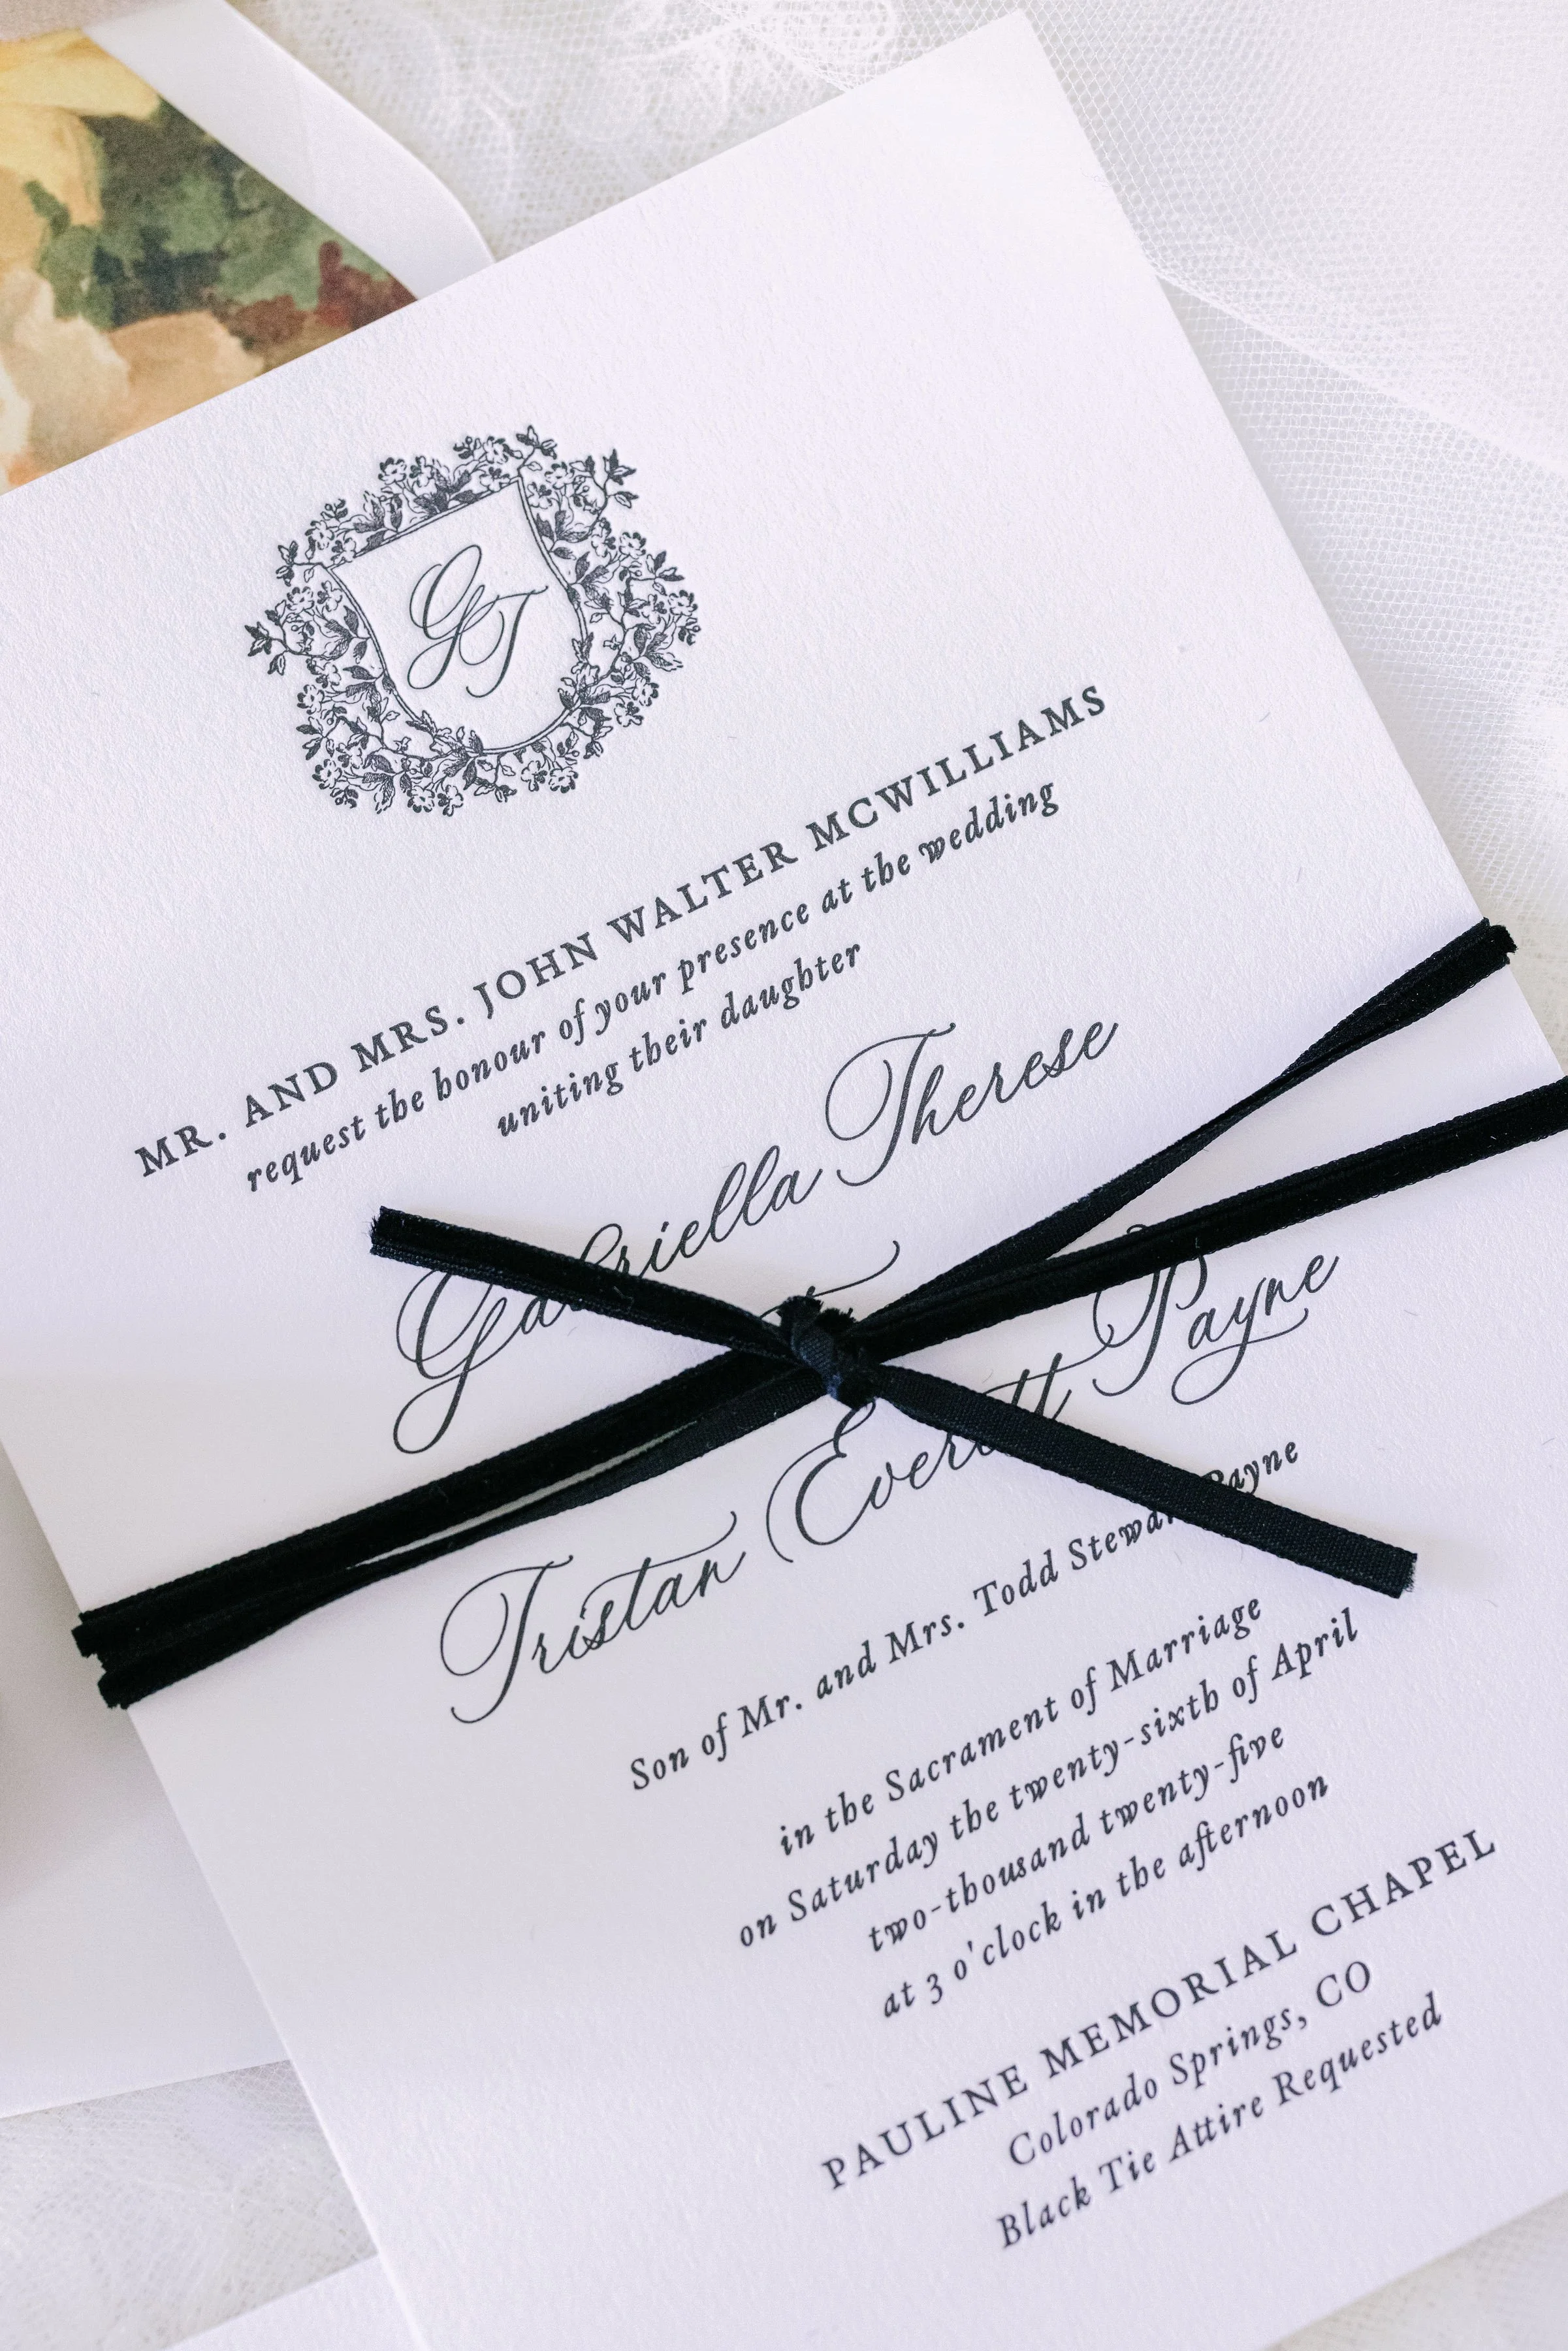 GT
MR. AND MRS. JOHN WALTER MCWILLIAMS
request the honour of your presence at the wedding
uniting their daughter
Gabriella Therese
Tristan Everett Payne
Son of Mr. and Mrs. Todd Stewart Payne
in the Sacrament of Marriage
on Saturday the twenty-sixth of April
two-thousand twenty-five
at 3 o'clock in the afternoon
PAULINE MEMORIAL CHAPEL
Colorado Springs, CO
Black Tie Attire Requested